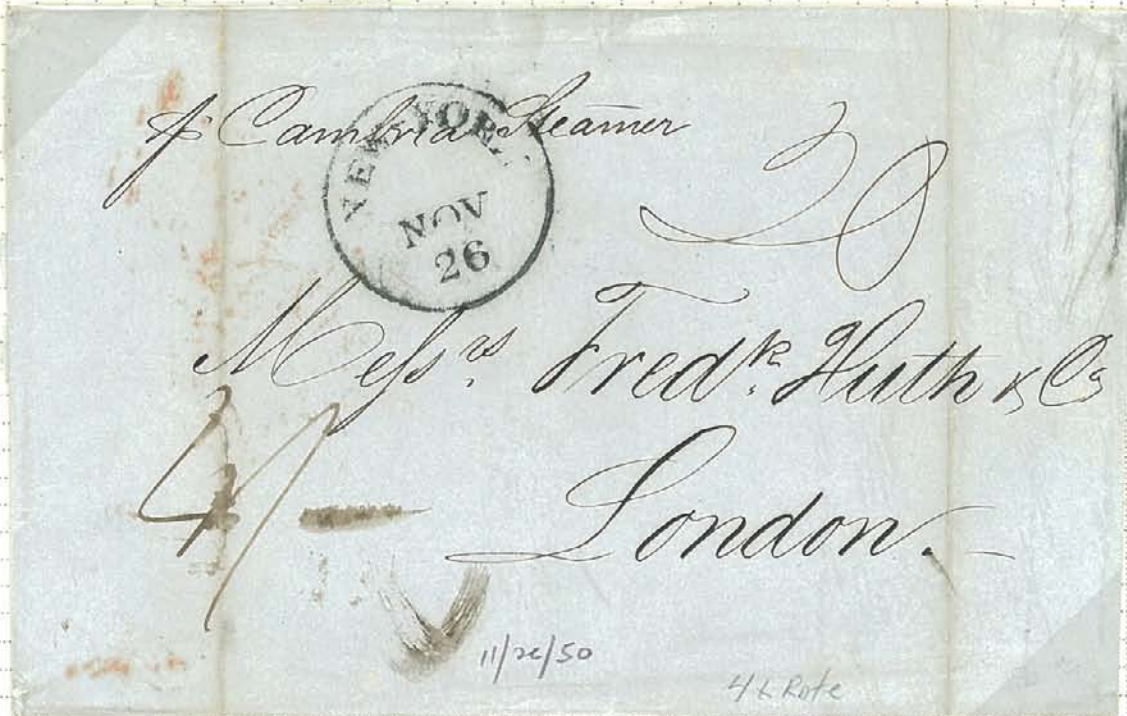 pr Cambria Steamer
NEW-YORK
NOV
26
20
Messrs. Fredk. Huth & Co
4/-
London.
11/26/50
4 x Rate